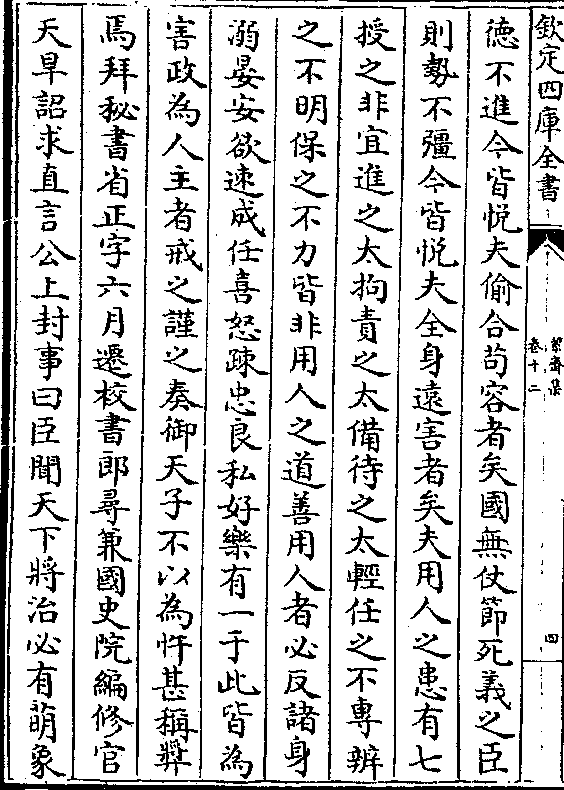 欽定四庫全書
絜齋集
卷十二
四
德不進今皆悦夫偷合苟容者矣國無仗節死義之臣
則勢不彊今皆悦夫全身遠害者矣夫用人之患有七
授之非宜進之太拘責之太備待之太輕任之不專辨
之不明保之不力皆非用人之道善用人者必反諸身
溺晏安欲速成任喜怒疎忠良私好樂有一于此皆為
害政為人主者戒之謹之奏御天子不以為忤甚稱奬
焉拜秘書省正字六月遷校書郎尋兼國史院編修官
天旱詔求直言公上封事曰臣聞天下將治必有萌象